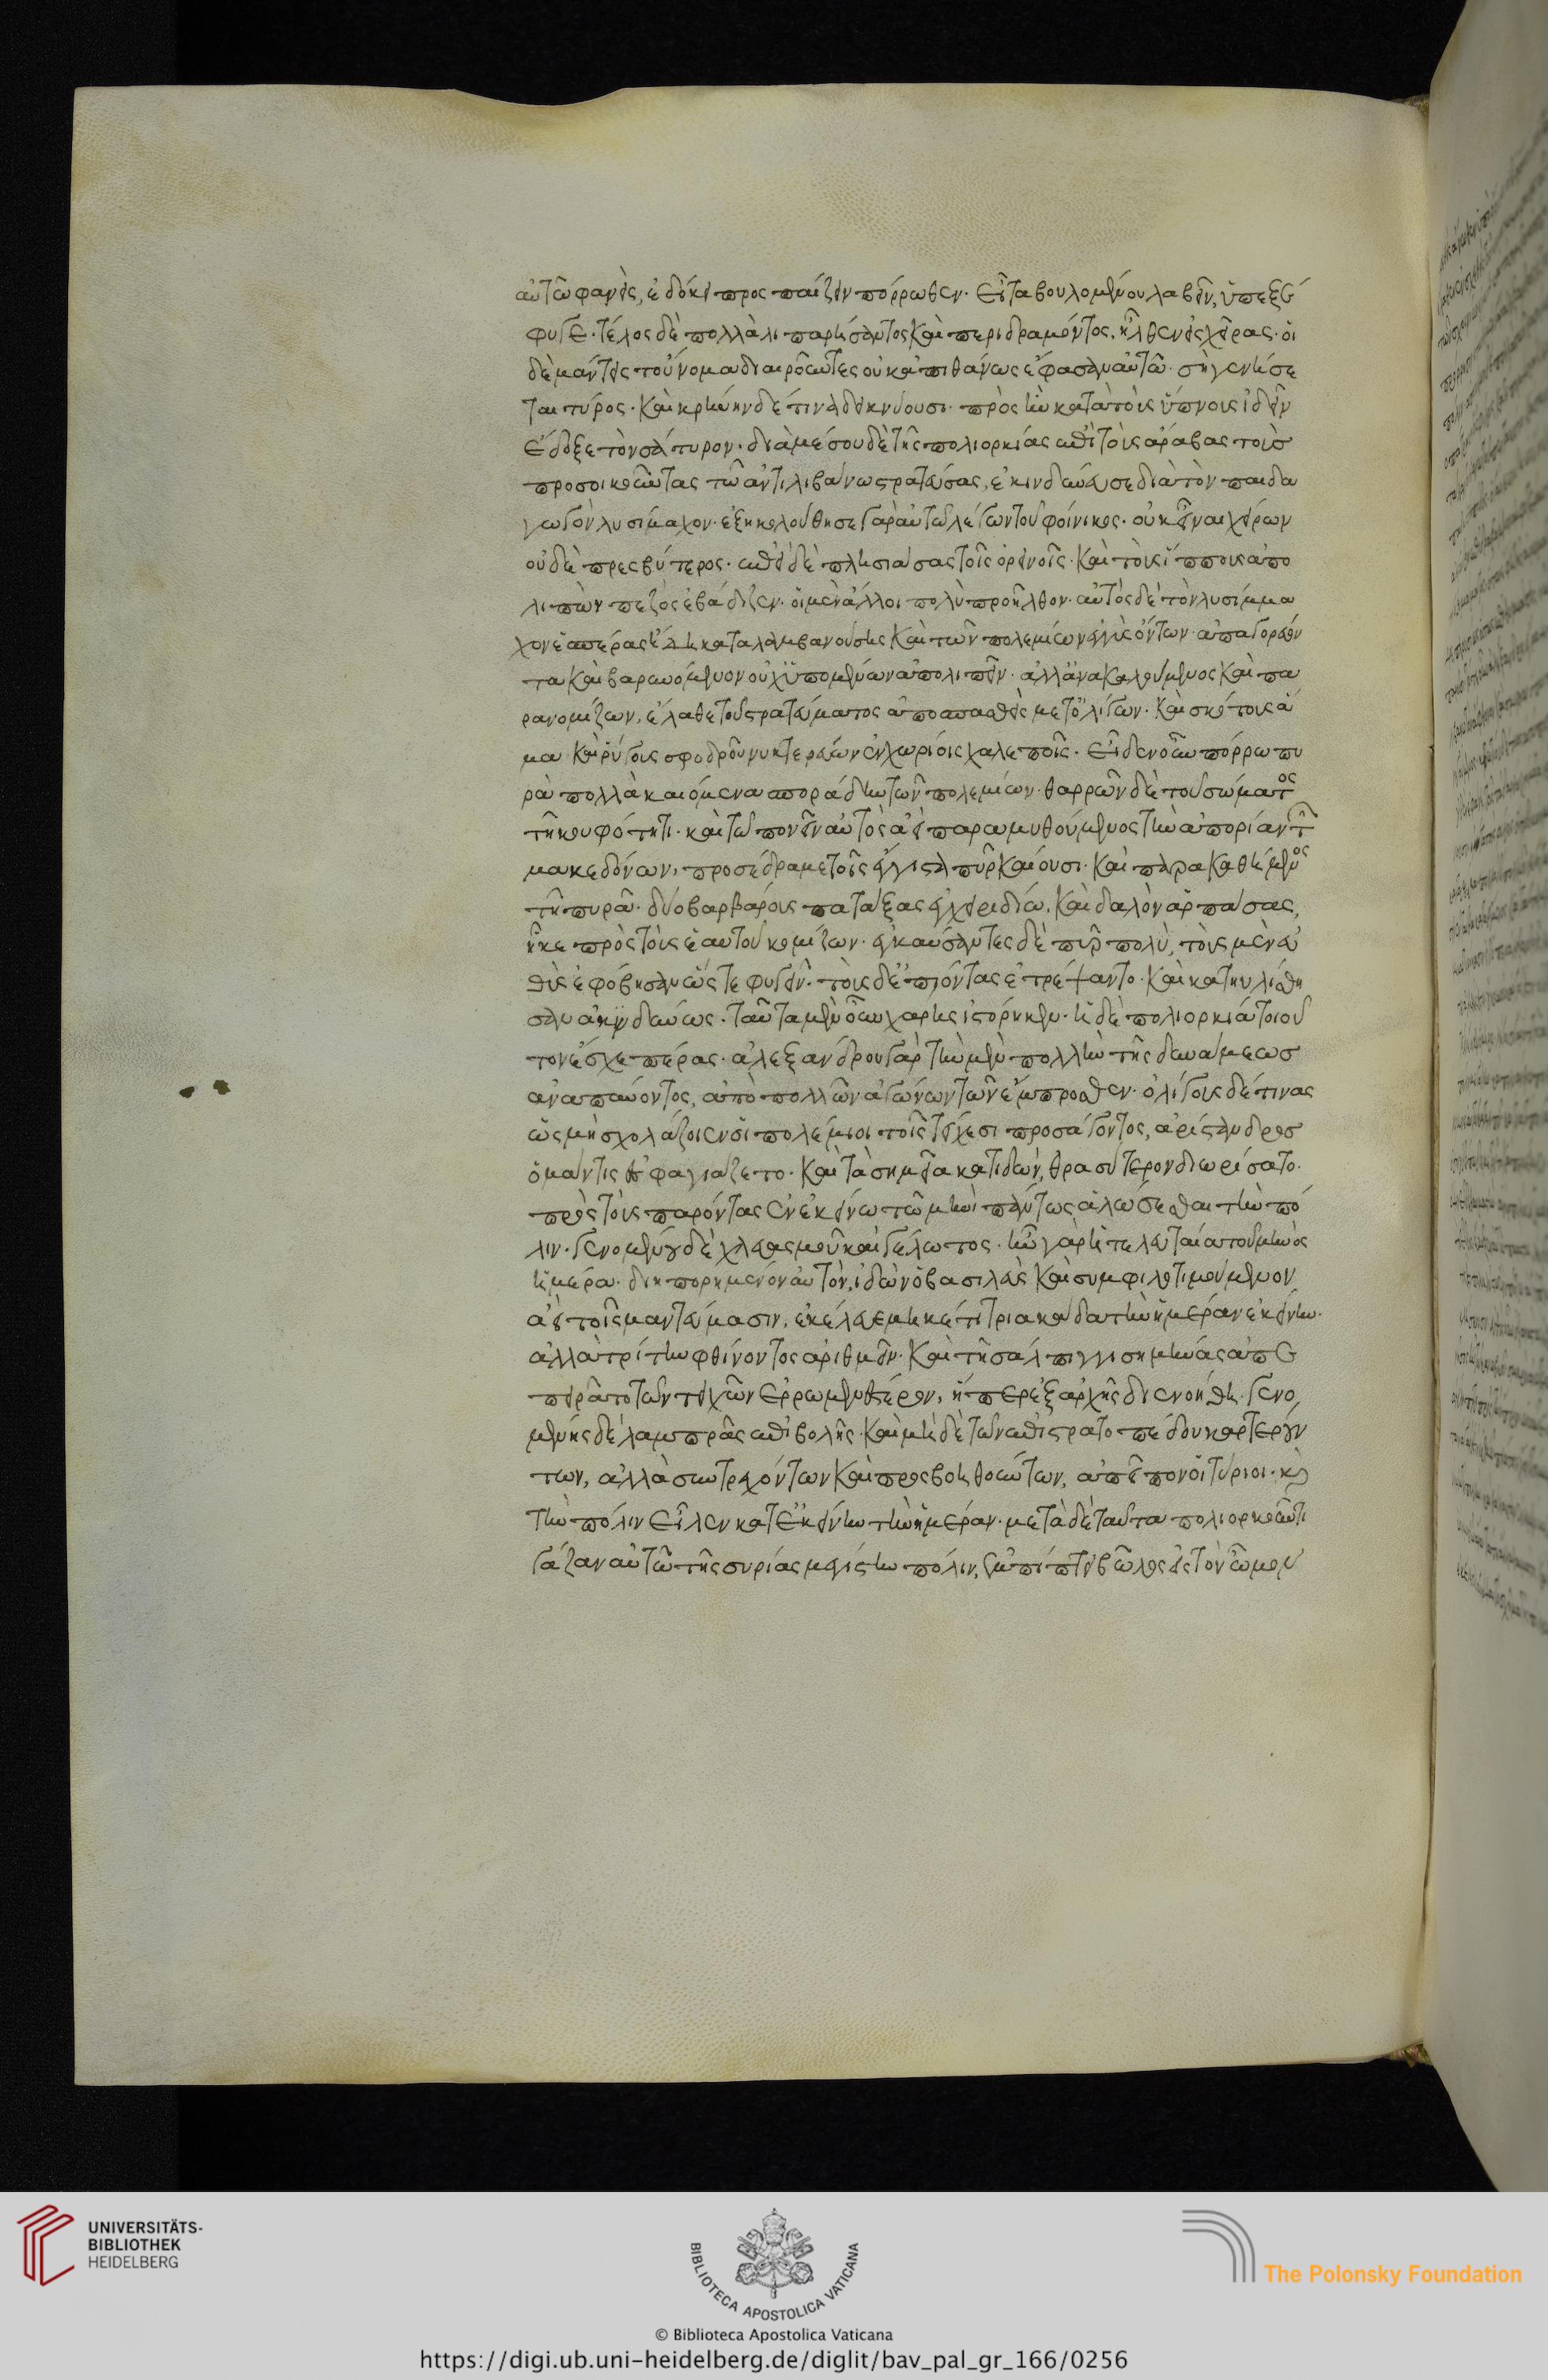 αὐτῶ φανεὶς, ἐδόκει προσπαίζειν πόρρωθεν· εἶτα βουλομένου λαβεῖν, ὑπεξέ
φυγε· τέλος δὲ πολλὰ λιπαρήσαντος καὶ περιδραμόντος, ἦλθεν εἰς χεῖρας· οἱ
δὲ μάντεις τοὔνομα διαιροῦντες οὐκ ἀπιθάνως ἔφασαν αὐτῶ· σὴ γενήσε
ται τύρος· καὶ κρήνην δέ τινα δεικνύουσι· πρὸς ἣν κατὰ τοὺς ὕπνους ἰδεῖν
ἔδοξε τὸν σάτυρον· διὰ μέσου δὲ τῆς πολιορκίας ἐπὶ τοὺς ἄραβας τοὺς
προσοικοῦντας τῶ ἀντιλιβάνω στρατεύσας, ἐκινδύνευσε διὰ τὸν παιδα
γωγὸν λυσίμαχον· ἐξηκολούθησε γὰρ αὐτῶ λέγων τοῦ φοίνικος· οὐκ εἶναι χείρων
οὐδὲ πρεσβύτερος· ἐπεὶ δὲ πλησιάσας τοῖς ὀρεινοῖς· καὶ τοὺς ἵππους ἀπο
λιπὼν πεζὸς ἐβάδιζεν· οἱ μὲν ἄλλοι πολὺ προῆλθον· αὐτὸς δὲ τὸν λυσίμμα
χον ἑσπέρας ἤδη καταλαμβανούσης καὶ τῶν πολεμίων ἐγγὺς ὄντων· ἀπαγορεύον
τα καὶ βαρυνόμενον οὐχ ὑπομένων ἀπολιπεῖν· ἀλλ' ἀνακαλούμενος καὶ πα
ρανομίζων, ἔλαθε τοῦ στρατεύματος ἀποσπασθεὶς μετ' ὀλίγων· καὶ σκότους ἅ
μα καὶ ῥίγους σφοδροῦ νυκτερεύων ἐν χωρίοις χαλεποῖς· εἶδεν οὖν πόρρω πυ
ρὰ πολλὰ καιόμενα σποράδην τῶν πολεμίων· θαρρῶν δὲ τοῦ σώματος
τῆ κουφότητι· καὶ τῶ πονεῖν αὐτὸς ἀεὶ παραμυθούμενος τὴν ἀπορίαν τῶν
μακεδόνων, προσέδραμε τοῖς ἔγγιστα πῦρ καίουσι· καὶ παρακαθημένους
τῆ πυρᾶ· δύο βαρβάρους πατάξας ἐγχειριδίω, καὶ δαλὸν ἁρπάσας,
ἧκε πρὸς τοὺς ἑαυτοῦ κομίζων· ἐγκαύσαντες δὲ πῦρ πολὺ, τοὺς μὲν εὐ
θὺς ἐφόβησαν ὥστε φυγεῖν· τοὺς δ' ἐπιόντας ἐτρέψαντο· καὶ κατηυλίσθη
σαν ἀκινδύνως· ταῦτα μὲν οὖν χάρης ἱστόρηκεν· ἡ δὲ πολιορκία τοιοῦ
τον ἔσχε πέρας· ἀλεξάνδρου γὰρ τὴν μὲν πολλὴν τῆς δυνάμεως
ἀναπαύοντος, ἀπὸ πολλῶν ἀγώνων τῶν ἔμπροσθεν· ὀλίγους δέ τινας
ὡς μὴ σχολάζοιεν οἱ πολέμιοι τοῖς τείχεσι προσάγοντος, ἀρίστανδρος
ὁ μάντις ἐσφαγιάζετο· καὶ τὰ σημεῖα κατιδὼν, θρασύτερον διωρίσατο·
πρὸς τοὺς παρόντας ἐν ἐκείνω τῶ μηνὶ πάντως ἁλώσεσθαι τὴν πό
λιν· γενομένου δὲ χλευασμοῦ καὶ γέλωτος· ἦν γὰρ ἡ τελευταία τοῦ μηνὸς
ἡμέρα· διηπορημένον αὐτὸν, ἰδὼν ὁ βασιλεὺς καὶ συμφιλοτιμούμενον
ἀεὶ τοῖς μαντεύμασιν, ἐκέλευε μηκέτι τριακάδα τὴν ἡμέραν ἐκείνην·
ἀλλὰ τρίτην φθίνοντος ἀριθμεῖν· καὶ τῆ σάλπιγγι σημήνας ἀπε
πειρᾶτο τῶν τειχῶν ἐρρωμενέστερον, ἤπερ ἐξ ἀρχῆς διενοήθη· γενο
μένης δὲ λαμπρᾶς ἐπιβολῆς· καὶ μηδὲ τῶν ἐπὶ στρατοπέδου καρτερούν
των, ἀλλὰ συντρεχόντων καὶ προσβοηθούντων, ἀπεῖπον οἱ τύριοι· καὶ
τὴν πόλιν εἷλεν κατ' ἐκείνην τὴν ἡμέραν· μετὰ δὲ ταῦτα πολιορκοῦντι
γάζαν αὐτῶ τῆς συρίας μεγίστην πόλιν, ἐμπίπτει βῶλος εἰς τὸν ὦμον
UNIVERSITÄTS-
BIBLIOTHEK
HEIDELBERG
BIBLIOTECA APOSTOLICA VATICANA
© Biblioteca Apostolica Vaticana
The Polonsky Foundation
https://digi.ub.uni-heidelberg.de/diglit/bav_pal_gr_166/0256